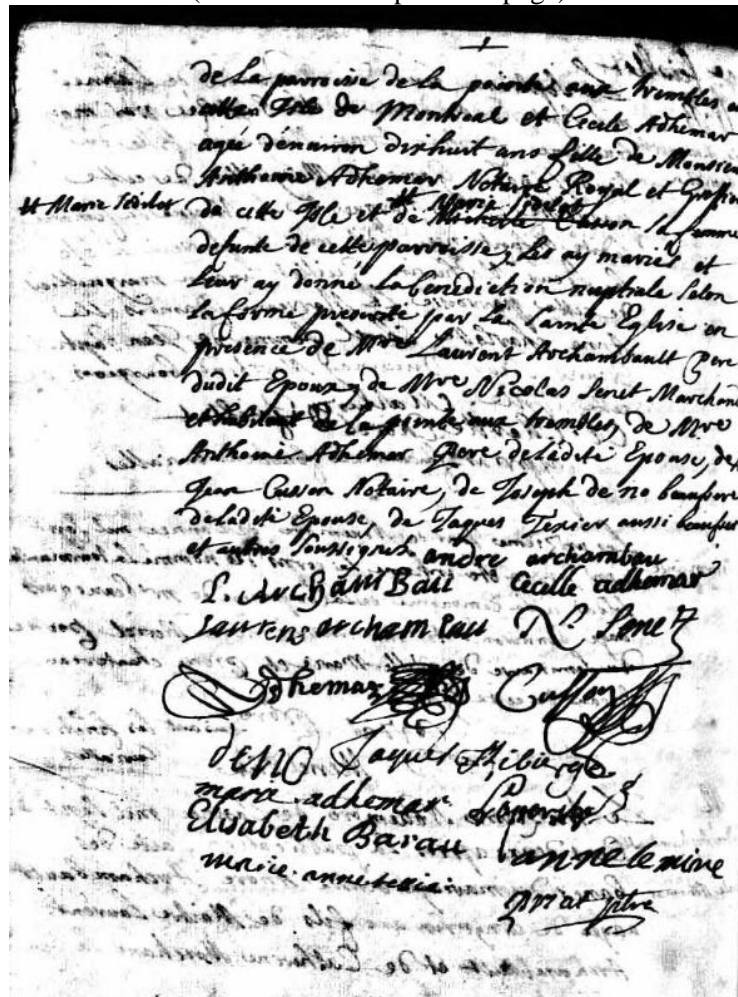 de La parroisse de la pointe aux trembles en
cette Isle de Montreal et Cecile Adhemar
agée dénuiron dixhuit ans fille de Monsieu
Anthoine Adhemar Notaire Royal et Greffier
# Marie Sedilot
de cette Isle et de Michelle Cusson sa femme
# Marie Sedilot
defunte de cette parroisse, Les ay mariés et
Leur ay donné La benediction nuptiale Selon
La forme prescrite par La Sainte Eglise en
presence de Mre Laurent Archambault Pere
dudit Epoux, de Mre Nicolas Senet Marchand
et habitant de la pointe aux trembles, de Mre
Anthoine Adhemar Pere de ladite Epouse, de
Jean Cusson Notaire, de Joseph de no beaufrere
de ladite Epouse, de Jaques Texier aussi beaufrere
et autres Soussignez
andre archambau
L. ARCHAMBAU Cecille adhemar
Laurens archambau N. Senet
Adhemar Cusson
deNO Jaque Thiberge
mara adhemar
Elisabeth Barau anne lemire
marie anne texia
Priat ptre